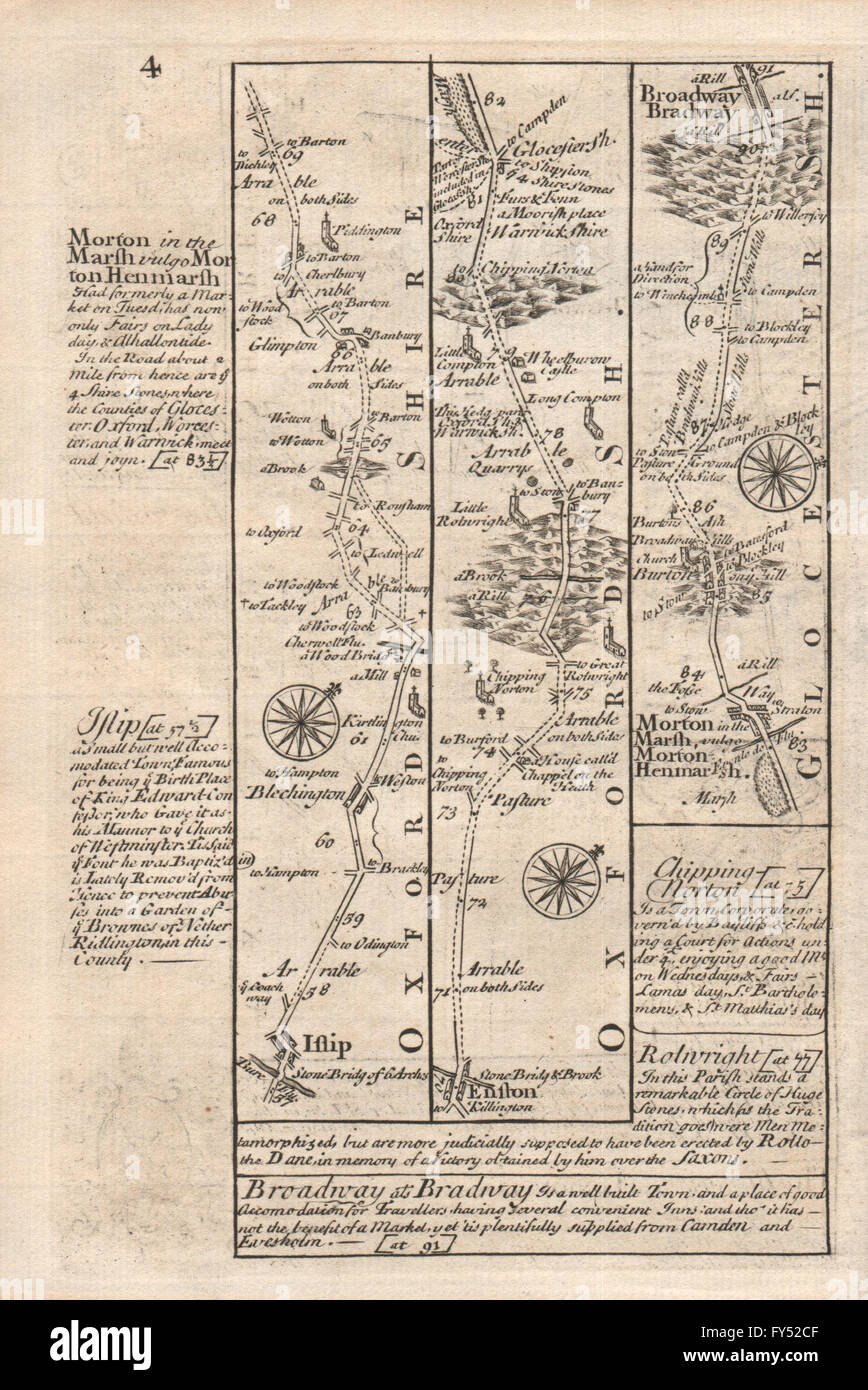 4
Morton in the
Marsh vulgo Mor
ton Henmarsh
Had formerly a Mar=
ket on Tuesd: has now
only Fairs on Lady
day & Alhallontide.
In the Road about a
Mile from hence are ye
4 Shire Stones, where
the Counties of Gloces=
ter, Oxford, Worces=
ter, and Warwick, meet
and joyn. [at 83¼]
Islip [at 57½]
a Small but well Acco=
modated Town, Famous
for being ye Birth Place
of King Edward Con=
fessor, who Gave it as
his Mannor to ye Church
of Westminster. Tis Said
ye Font he was Baptiz'd in
is Lately Remov'd from
Hence to prevent Abu=
ses into a Garden of
ye Brownes of Nether
Ridlington, in this
County.
to Barton
69
Arrable
on both Sides
68
Piddington
to Barton
to Cherlbury
Arrable
to Barton
to Wood
stock
67
Glimpton
Banbury
66
Arrable
on both Sides
Wotton
to Barton
to Wotton
65
a Brook
to Rousham
to Oxford
64
to Ledwell
to Woodstock
to Banbury
to Tackley
Arrable
63
to Woodstock
Cherwell Flu.
a Wood Bridg
a Mill
Kirtlington
Chu.
61
to Hampton
Weston
Blechington
60
to Hampton
to Brackley
59
to Odington
Arrable
ye Coach
way
58
Islip
Stone Bridg of 6 Arches
57
OXFORDSHIRE
82
to Campden
Glocester Sh.
to Shipston
ye 4 Shire Stones
enter
81
Furs & Fenn
a Moorish place
Warwick Shire
Oxford
Shire
80
to Chipping Norton
Little
Compton
79
Wheelburow
Castle
Arrable
Long Compton
78
Arrable
Quarrys
to Stow
to Ban=
bury
Little
Rolwright
77
a Brook
a Rill
76
to Great
Rolwright
Chipping
Norton
75
Arrable
on both Sides
to Burford
74
a House call'd
Chappel on the
Heath
to
Chipping
Norton
73
Pasture
Pasture
72
Arrable
on both Sides
71
Stone Bridg & Brook
70
Enston
to Killington
OXFORDSH.
91
a Rill
Broadway
als.
Bradway
a Rill
90
to Willersey
89
a Hand for
Direction
to Winchcomb
to Campden
88
to Blockley
to Campden
Stone Walls
Pasture call'd
87
to Campden & Block
ley
to Stow
Pasture Ground
on both Sides
86
Burton
Ash
Broadway Hills
to Batesford
to Blockley
Church
Burton
to Stow
85
84
a Rill
the Fosse Way
to Stow
to Straton
Morton in the
Marsh, vulgo
Morton
Henmarsh.
83
Marsh
GLOCESTERSH.
Chipping
Norton [at 75]
Is a Town Corporate go=
vern'd by Bayliffs &c. hold
ing a Court for Actions un
der 4£, enjoying a good Mt.
on Wednesdays, & Fairs
Lamas day, St. Bartholo=
mews, & St. Matthias's day
Rolwright [at 77]
In this Parish stands a
remarkable Circle of Huge
Stones, which (as the Tra=
dition goes) were Men Me=
tamorphized, but are more judicially supposed to have been erected by Rollo
the Dane, in memory of a Victory obtained by him over the Saxons.
Broadway als Bradway Is a well built Town, and a place of good
Accomodation for Travellers, having several convenient Inns: and tho' it has
not the benefit of a Market, yet 'tis plentifully supplied from Camden and
Evesholm. [at 91]
alamy
Image ID: FY52CF
www.alamy.com